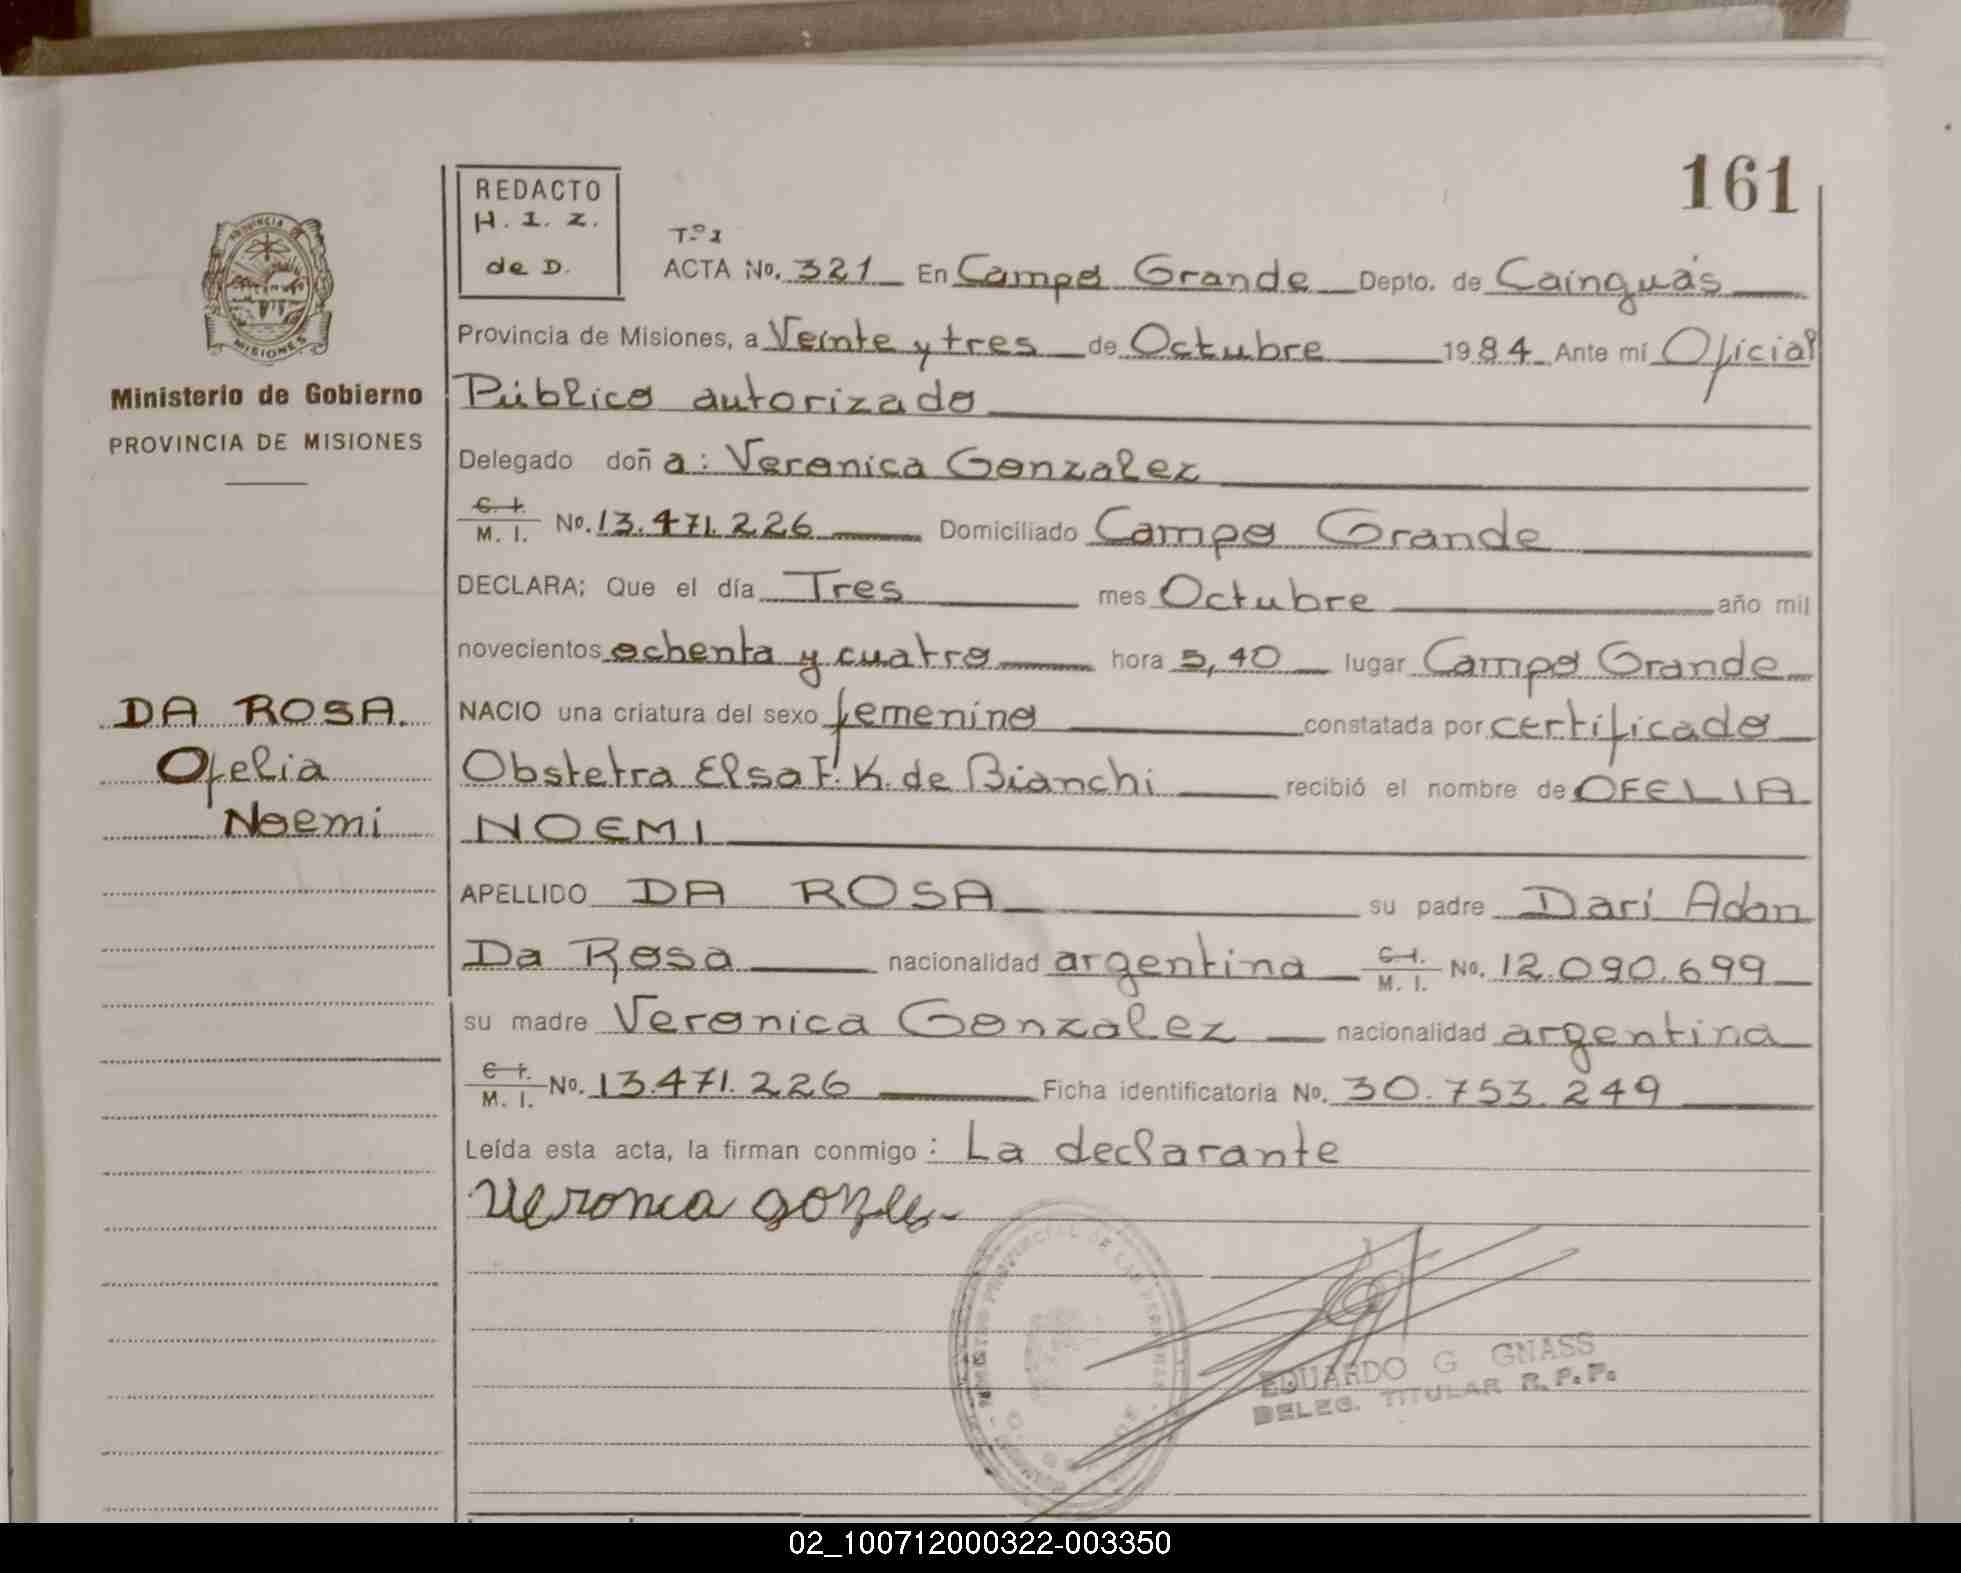 161
REDACTO
H. I. Z.
de D.
Tº 1
ACTA No. 321 En Campo Grande Depto. de Cainguás
Provincia de Misiones, a Veinte y tres de Octubre 1984 Ante mí Oficial
Público autorizado
Delegado doña: Veronica Gonzalez
C. I.
M. I. No. 13.471.226 Domiciliado Campo Grande
DECLARA; Que el día Tres mes Octubre año mil
novecientos ochenta y cuatro hora 5,40 lugar Campo Grande
NACIO una criatura del sexo femenino constatada por certificado
Obstetra Elsa F. K. de Bianchi recibió el nombre de OFELIA
NOEMI
APELLIDO DA ROSA su padre Dari Adan
Da Rosa nacionalidad argentina C. I. M. I. No. 12.090.699
su madre Veronica Gonzalez nacionalidad argentina
C. I.
M. I. No. 13.471.226 Ficha identificatoria No. 30.753.249
Leída esta acta, la firman conmigo: La declarante
Veronica
PROVINCIA DE
MISIONES
Ministerio de Gobierno
PROVINCIA DE MISIONES
DA ROSA.
Ofelia
Noemi
REGISTRO PROVINCIAL DE LAS PERSONAS
EDUARDO G GNASS
DELEG. TITULAR R. P. P.
02_100712000322-003350